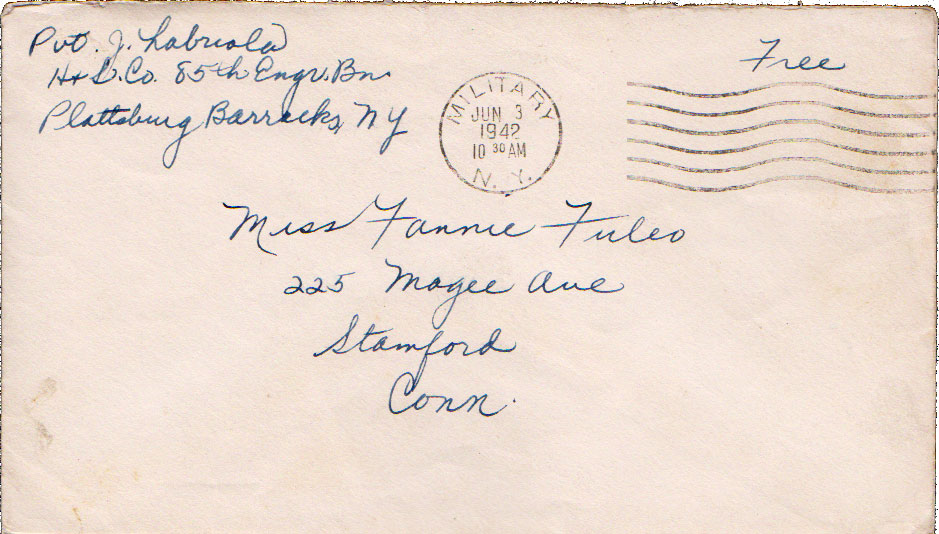 Pvt. J. Labriola
H+S. Co. 85th Engr. Bn.
Plattsburg Barracks, NY
Free
MILITARY
JUN 3
1942
10 30 AM
N. Y.
Miss Fannie Fuleo
225 Magee Ave
Stamford
Conn.